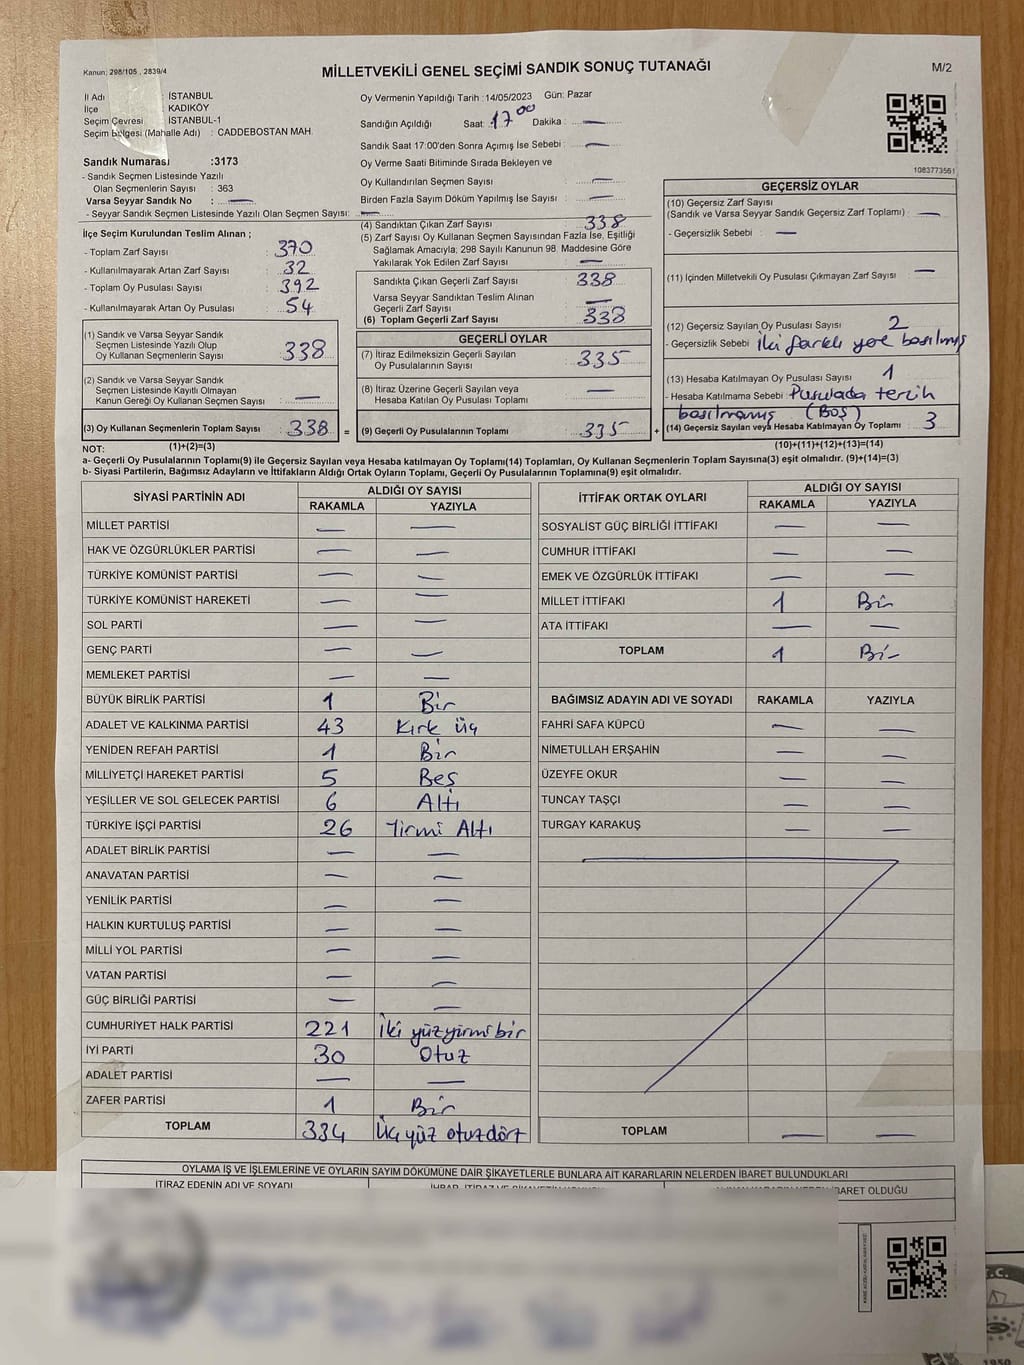 Kanun: 298/105 , 2839/4
MİLLETVEKİLİ GENEL SEÇİMİ SANDIK SONUÇ TUTANAĞI
M/2
İl Adı : İSTANBUL
İlçe : KADIKÖY
Seçim Çevresi : İSTANBUL-1
Seçim Bölgesi (Mahalle Adı) : CADDEBOSTAN MAH.
Sandık Numarası :3173
- Sandık Seçmen Listesinde Yazılı
Olan Seçmenlerin Sayısı : 363
Varsa Seyyar Sandık No : —
- Seyyar Sandık Seçmen Listesinde Yazılı Olan Seçmen Sayısı: —
Oy Vermenin Yapıldığı Tarih :14/05/2023 Gün: Pazar
Sandığın Açıldığı Saat: 17 00 Dakika : —
Sandık Saat 17:00'den Sonra Açımış İse Sebebi : —
Oy Verme Saati Bitiminde Sırada Bekleyen ve
Oy Kullandırılan Seçmen Sayısı : —
Birden Fazla Sayım Döküm Yapılmış İse Sayısı : —
1083773561
İlçe Seçim Kurulundan Teslim Alınan ;
- Toplam Zarf Sayısı : 370
- Kullanılmayarak Artan Zarf Sayısı : 32
- Toplam Oy Pusulası Sayısı : 392
- Kullanılmayarak Artan Oy Pusulası : 54
(1) Sandık ve Varsa Seyyar Sandık
Seçmen Listesinde Yazılı Olup
Oy Kullanan Seçmenlerin Sayısı : 338
(2) Sandık ve Varsa Seyyar Sandık
Seçmen Listesinde Kayıtlı Olmayan
Kanun Gereği Oy Kullanan Seçmen Sayısı : —
(3) Oy Kullanan Seçmenlerin Toplam Sayısı : 338 =
(4) Sandıktan Çıkan Zarf Sayısı : 338
(5) Zarf Sayısı Oy Kullanan Seçmen Sayısından Fazla İse, Eşitliği
Sağlamak Amacıyla; 298 Sayılı Kanunun 98. Maddesine Göre
Yakılarak Yok Edilen Zarf Sayısı : —
Sandıkta Çıkan Geçerli Zarf Sayısı : 338
Varsa Seyyar Sandıktan Teslim Alınan
Geçerli Zarf Sayısı : —
(6) Toplam Geçerli Zarf Sayısı : 338
GEÇERLİ OYLAR
(7) İtiraz Edilmeksizin Geçerli Sayılan
Oy Pusulalarının Sayısı : 335
(8) İtiraz Üzerine Geçerli Sayılan veya
Hesaba Katılan Oy Pusulası Toplamı : —
(9) Geçerli Oy Pusulalarının Toplamı : 335 +
GEÇERSİZ OYLAR
(10) Geçersiz Zarf Sayısı
(Sandık ve Varsa Seyyar Sandık Geçersiz Zarf Toplamı) : —
- Geçersizlik Sebebi : —
(11) İçinden Milletvekili Oy Pusulası Çıkmayan Zarf Sayısı : —
(12) Geçersiz Sayılan Oy Pusulası Sayısı : 2
- Geçersizlik Sebebi : İki farklı yere basılmış
(13) Hesaba Katılmayan Oy Pusulası Sayısı : 1
- Hesaba Katılmama Sebebi : Pusulada tercih
basılmamış (Boş)
(14) Geçersiz Sayılan veya Hesaba Katılmayan Oy Toplamı : 3
NOT: (1)+(2)=(3)
(10)+(11)+(12)+(13)=(14)
a- Geçerli Oy Pusulalarının Toplamı(9) ile Geçersiz Sayılan veya Hesaba katılmayan Oy Toplamı(14) Toplamları, Oy Kullanan Seçmenlerin Toplam Sayısına(3) eşit olmalıdır. (9)+(14)=(3)
b- Siyasi Partilerin, Bağımsız Adayların ve İttifakların Aldığı Ortak Oyların Toplamı, Geçerli Oy Pusulalarının Toplamına(9) eşit olmalıdır.
SİYASİ PARTİNİN ADI ALDIĞI OY SAYISI
RAKAMLA YAZIYLA
MİLLET PARTİSİ — —
HAK VE ÖZGÜRLÜKLER PARTİSİ — —
TÜRKİYE KOMÜNİST PARTİSİ — —
TÜRKİYE KOMÜNİST HAREKETİ — —
SOL PARTİ — —
GENÇ PARTİ — —
MEMLEKET PARTİSİ — —
BÜYÜK BİRLİK PARTİSİ 1 Bir
ADALET VE KALKINMA PARTİSİ 43 Kırk üç
YENİDEN REFAH PARTİSİ 1 Bir
MİLLİYETÇİ HAREKET PARTİSİ 5 Beş
YEŞİLLER VE SOL GELECEK PARTİSİ 6 Altı
TÜRKİYE İŞÇİ PARTİSİ 26 Yirmi Altı
ADALET BİRLİK PARTİSİ — —
ANAVATAN PARTİSİ — —
YENİLİK PARTİSİ — —
HALKIN KURTULUŞ PARTİSİ — —
MİLLİ YOL PARTİSİ — —
VATAN PARTİSİ — —
GÜÇ BİRLİĞİ PARTİSİ — —
CUMHURİYET HALK PARTİSİ 221 İki yüz yirmi bir
İYİ PARTİ 30 Otuz
ADALET PARTİSİ — —
ZAFER PARTİSİ 1 Bir
TOPLAM 334 Üç yüz otuz dört
İTTİFAK ORTAK OYLARI ALDIĞI OY SAYISI
RAKAMLA YAZIYLA
SOSYALİST GÜÇ BİRLİĞİ İTTİFAKI — —
CUMHUR İTTİFAKI — —
EMEK VE ÖZGÜRLÜK İTTİFAKI — —
MİLLET İTTİFAKI 1 Bir
ATA İTTİFAKI — —
TOPLAM 1 Bir
BAĞIMSIZ ADAYIN ADI VE SOYADI RAKAMLA YAZIYLA
FAHRİ SAFA KÜPCÜ — —
NİMETULLAH ERŞAHİN — —
ÜZEYFE OKUR — —
TUNCAY TAŞÇI — —
TURGAY KARAKUŞ — —
TOPLAM — —
OYLAMA İŞ VE İŞLEMLERİNE VE OYLARIN SAYIM DÖKÜMÜNE DAİR ŞİKAYETLERLE BUNLARA AİT KARARLARIN NELERDEN İBARET BULUNDUKLARI
İTİRAZ EDENİN ADI VE SOYADI
İBARET OLDUĞU
.C.
1950